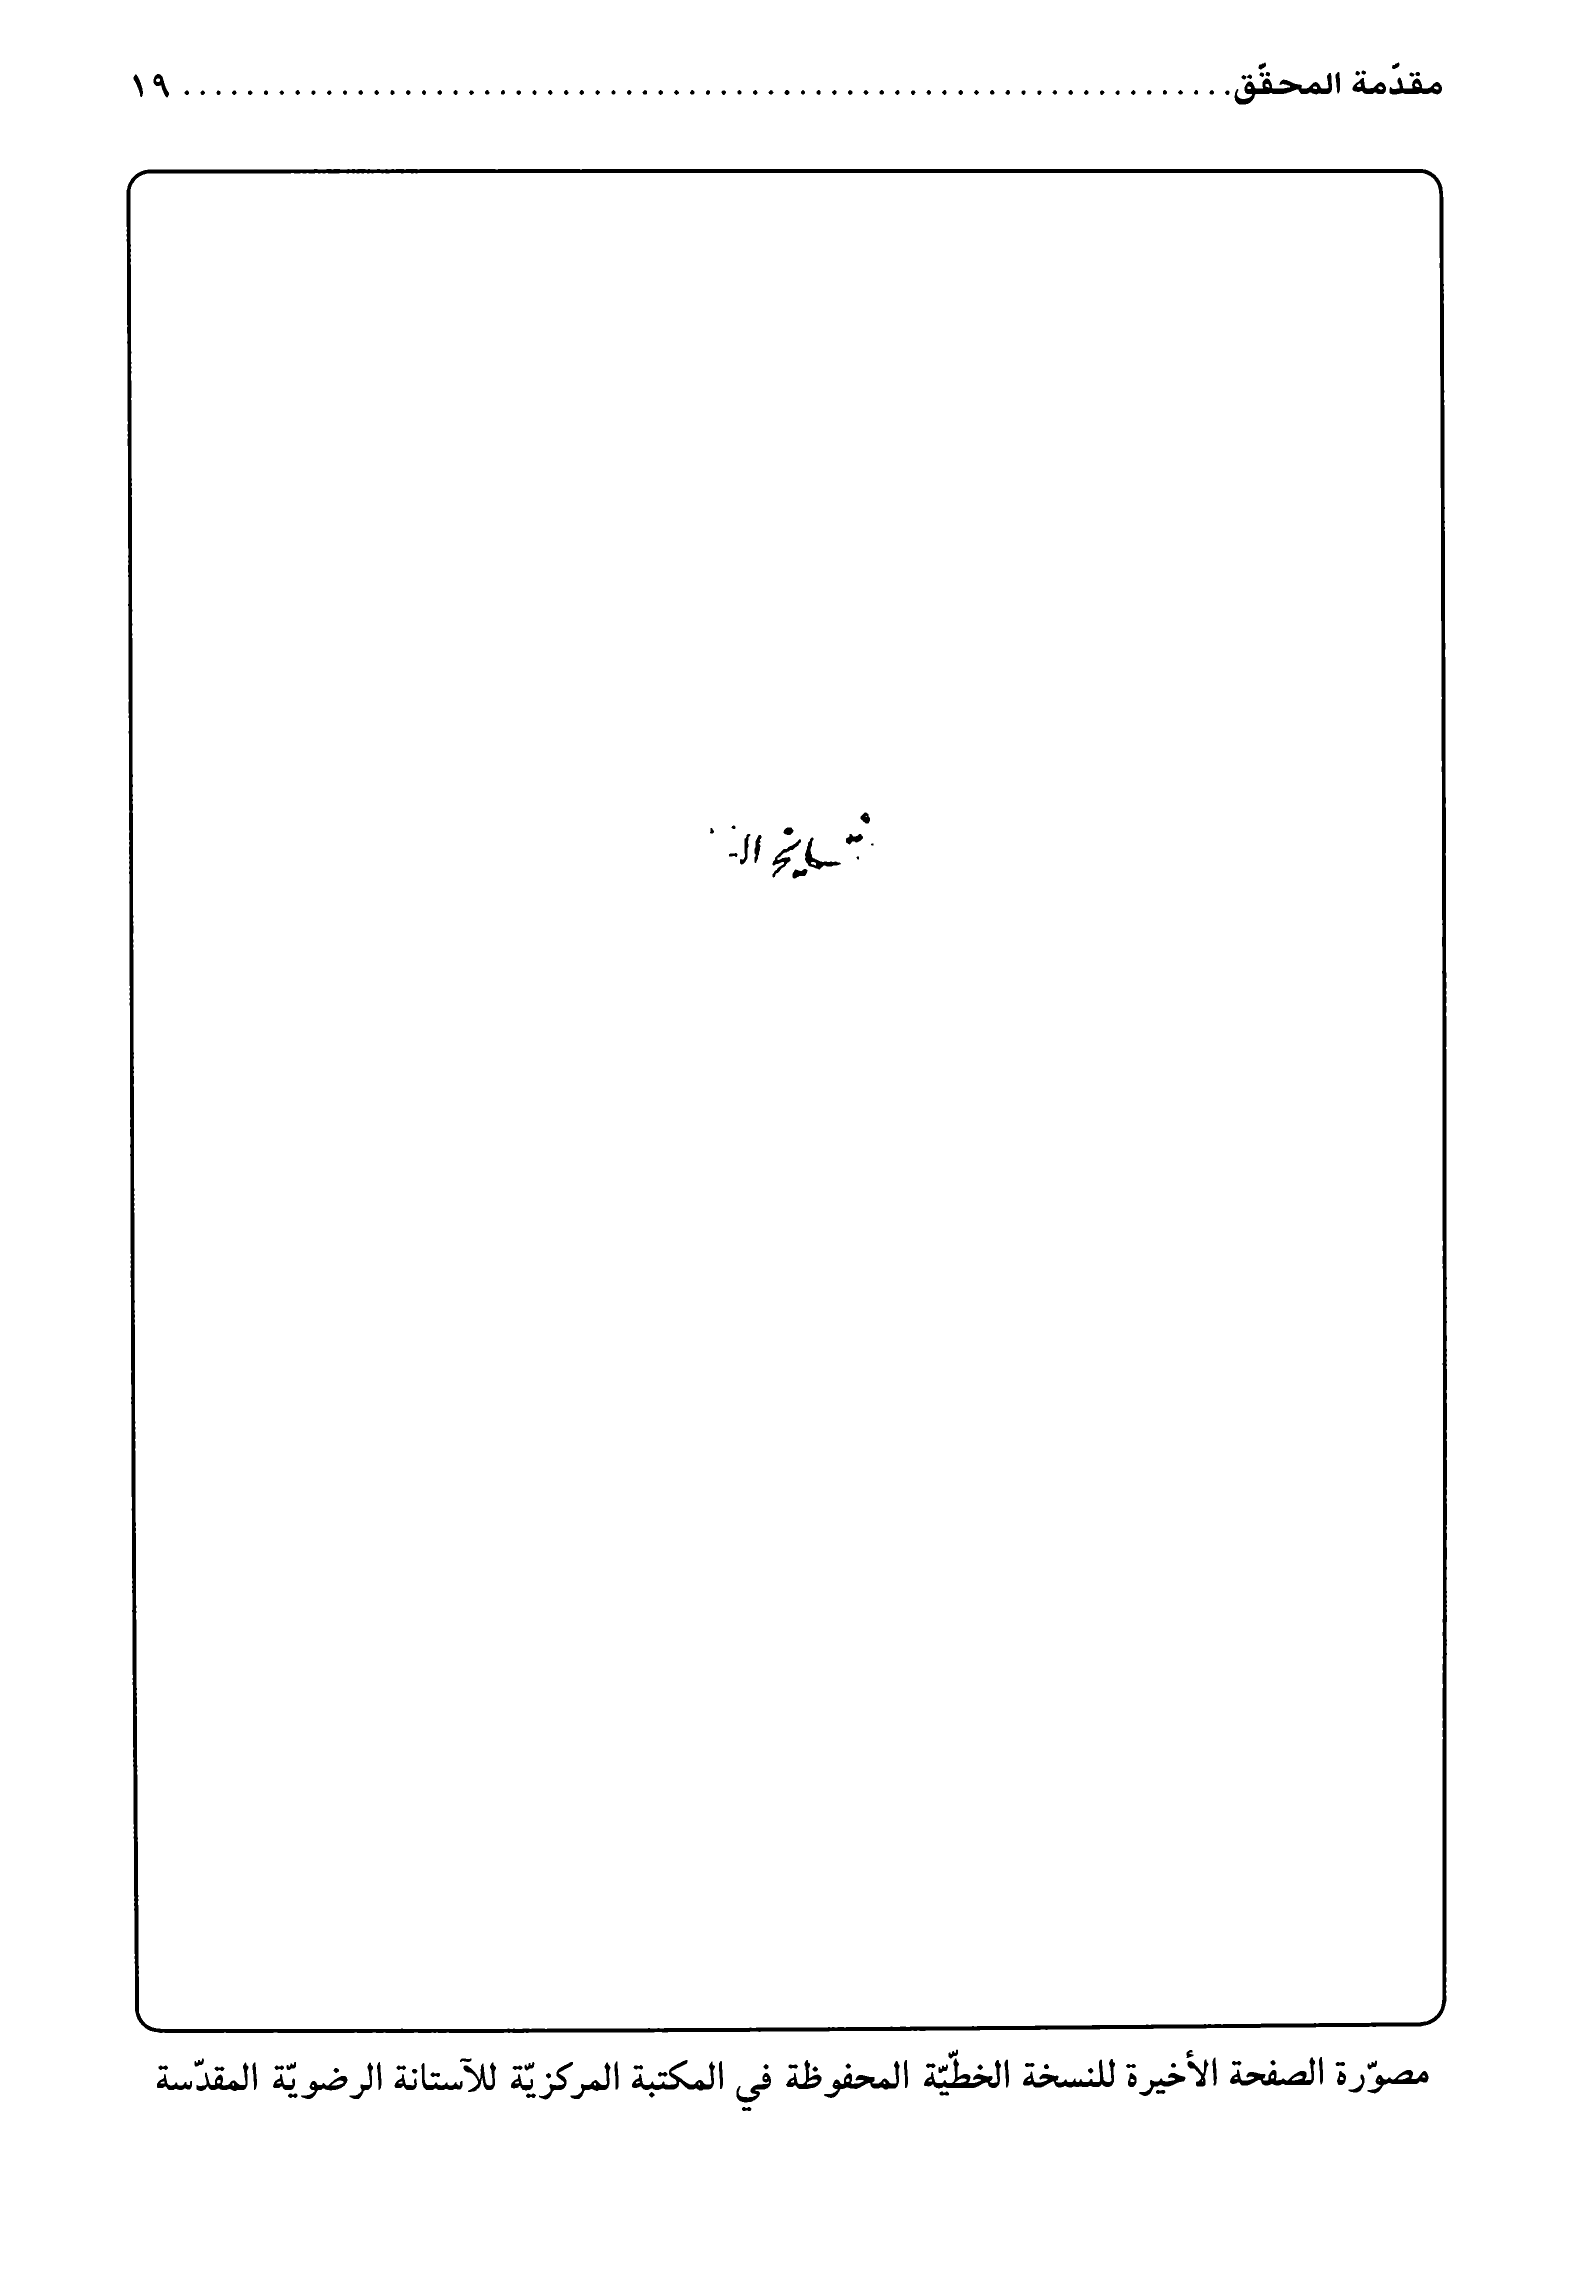 مقدّمة المحقّق ................................................................ ١٩
مصوّرة الصفحة الأخيرة للنسخة الخطّيّة المحفوظة في المكتبة المركزيّة للآستانة الرضويّة المقدّسة